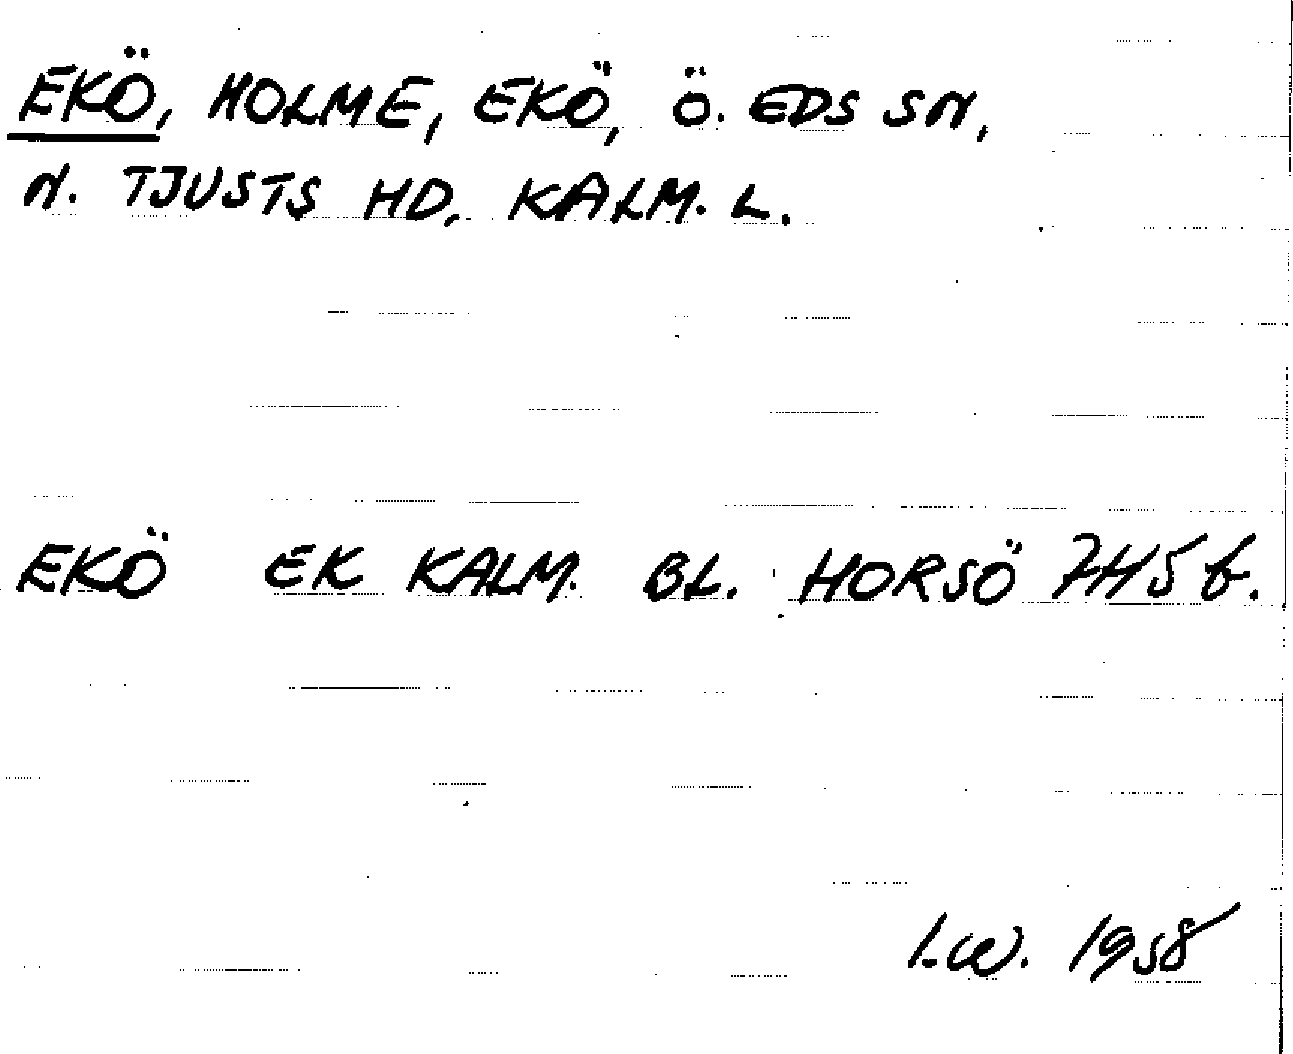 EKÖ, HOLME, EKÖ, Ö. EDS SN,
N. TJUSTS HD, KALM. L.
EKÖ EK KALM. BL. HORSÖ 7H5b.
I.W. 1958